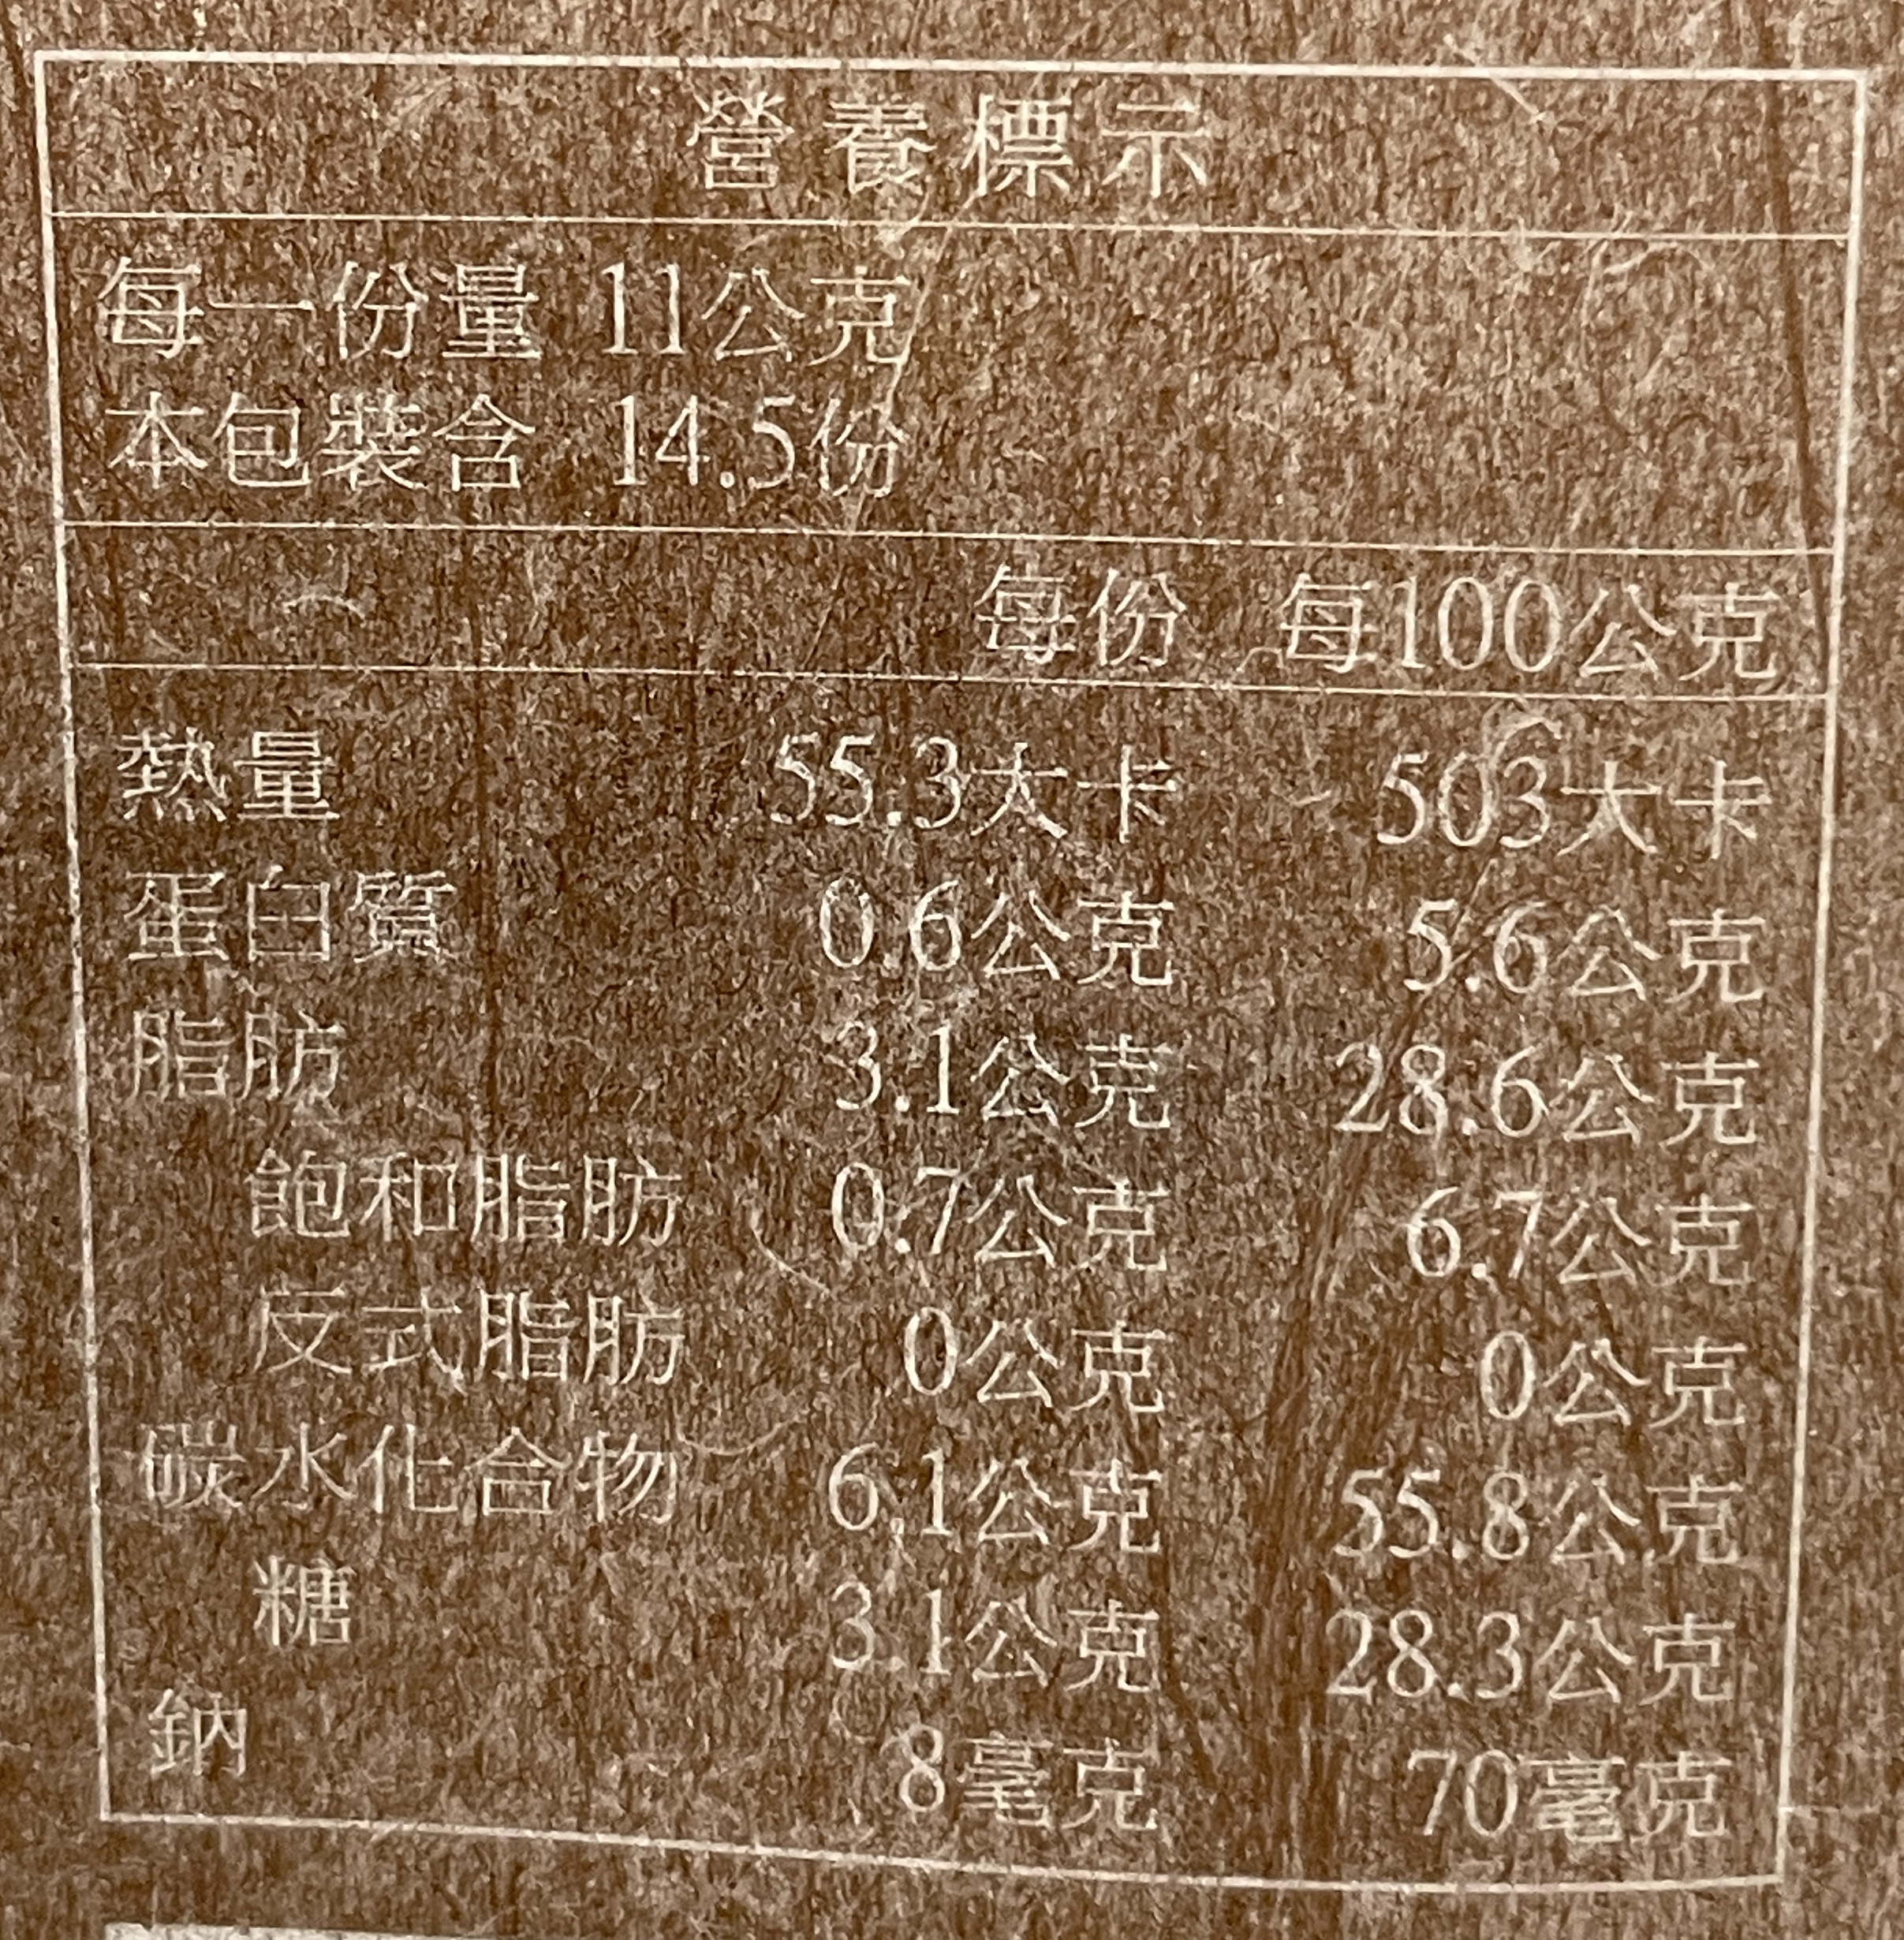 營養標示
每一份量 11公克
本包裝含 14.5份
每份 每100公克
熱量 55.3大卡 503大卡
蛋白質 0.6公克 5.6公克
脂肪 3.1公克 28.6公克
飽和脂肪 0.7公克 6.7公克
反式脂肪 0公克 0公克
碳水化合物 6.1公克 55.8公克
糖 3.1公克 28.3公克
鈉 8毫克 70毫克